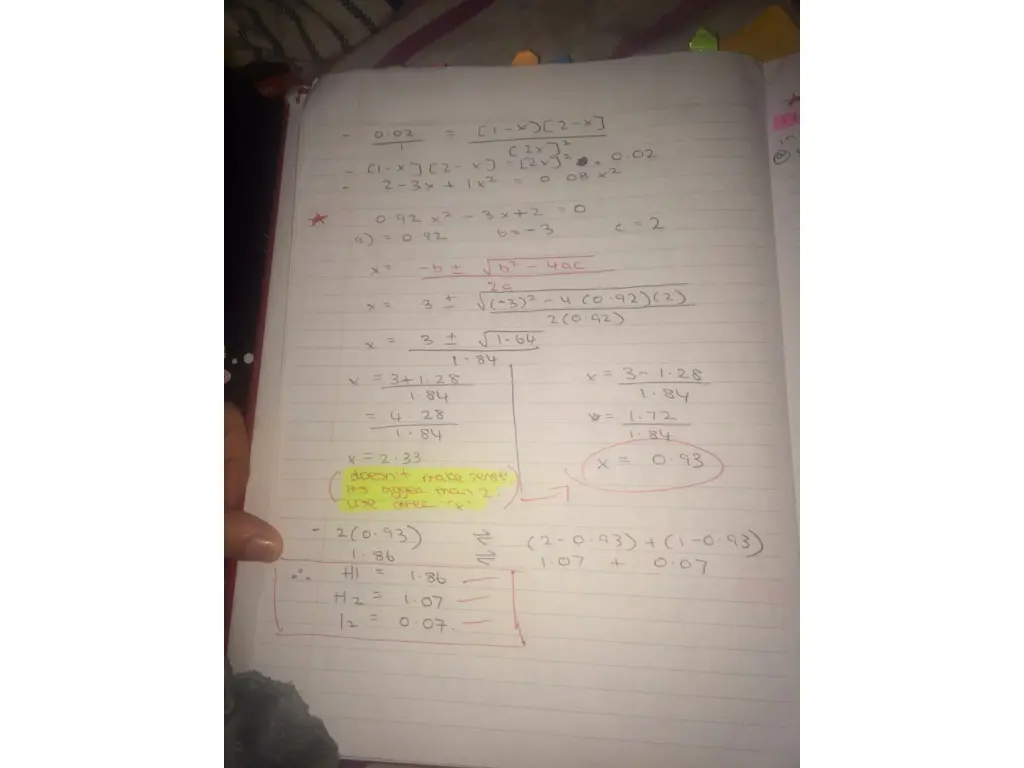 - 0.02 / 1 = [1-x][2-x] / [2x]²
- [1-x][2-x] = [2x]² . 0.02
- 2-3x + 1x² = 0.08x²
★ 0.92x² - 3x+2 = 0
a) = 0.92 b = -3 c = 2
x = -b ± √b² - 4ac / 2a
x = 3 ± √(-3)² - 4(0.92)(2) / 2(0.92)
x = 3 ± √1.64 / 1.84
x = 3+1.28 / 1.84
= 4 28 / 1.84
x = 2.33
(doesn't make sense,
its bigger than 2.
use other "x")
x = 3-1.28 / 1.84
x = 1.72 / 1.84
x = 0.93
- 2(0.93) ⇌ (2-0.93) + (1-0.93)
1.86 ⇌ 1.07 + 0.07
∴ HI = 1.86
H2 = 1.07
I2 = 0.07.